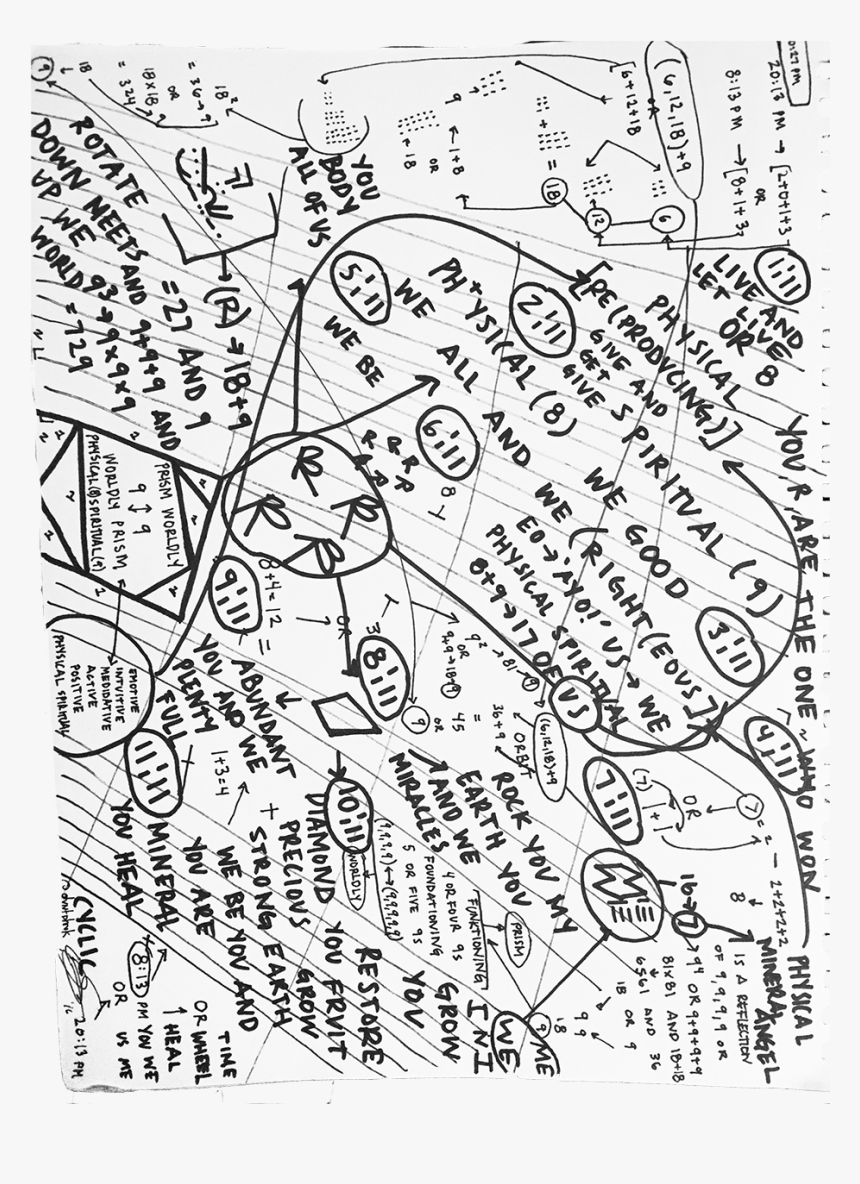 20:13 PM → [2+0+1+3]
OR
8:13 PM → [8+1+3]
(6,12,18)+9
OR
[6+12+18
6
12
18
9 ← 1+8
OR
← 18
YOU
BODY
ALL OF US
18²
= 36 → 9
OR
18 x 18
= 324
9
18
↓
9
1:11
LIVE AND
LET LIVE
OR 8
PHYSICAL
[RE(PRODUCING)]
GIVE AND
GET
GIVE
2:11
PH+YSICAL (8)
SPIRITUAL (9)
5:11
WE ALL AND WE (RIGHT(EOUS]
WE BE
WE GOOD
3:11
EO → 'AYO!' US → WE
PHYSICAL SPIRITUAL
8+9 → 17 OF US
6:11
YOU, R, ARE THE ONE ~ WHO WON
4:11
PHYSICAL
MINERAL ANGEL
(R) → 18+9
= 27 AND 9
AND 9+9+9 AND
93 → 9x9x9
= 729
ROTATE
DOWN MEETS
UP WE
WORLD
R R
R R
PRISM WORLDLY
9 ↕ 9
WORLDLY PRISM
PHYSICAL(8)SPIRITUAL(9)
EMOTIVE
INTUITIVE
MEDIDATIVE
ACTIVE
POSITIVE
PHYSICAL SPIRITUAL
9:11
8+4=12 =
OR
8:11
9² → 81 → 9
OR
9+9 → 18 → 9
36+9
= 45
OR
9
(6,12,18)+9
OR 89
7:11
(7)
1+1
OR
7 = 2 – 2+2+2+2
8
IS A REFLECTION
OF 9,9,9,9 OR
94 OR 9+9+9+9
81x81 AND 18+18
6561 AND 36
18 OR 9
WE
16 → 7
ROCK YOU MY
EARTH YOU
AND WE
MIRACLES
10:11
WORLDLY
(9,9,9,9) ↔ (9,9,9,9,9)
5 OR FIVE 9S
FOUNDATIONING
4 OR FOUR 9S
[FUNCTIONING]
PRISM
ME
WE
9
18
9 9
INI
GROW
YOU
RESTORE
YOU FRUIT
GROW
DIAMOND
PRECIOUS
+ STRONG EARTH
WE BE YOU AND
YOU ARE
MINERAL
YOU HEAL
ABUNDANT
YOU AND WE
PLENTY
FULL
1+3=4
11:11
TIME
OR WHEEL
↑ HEAL
8:13 PM YOU WE
OR US ME
CYCLIC
20:13 PM